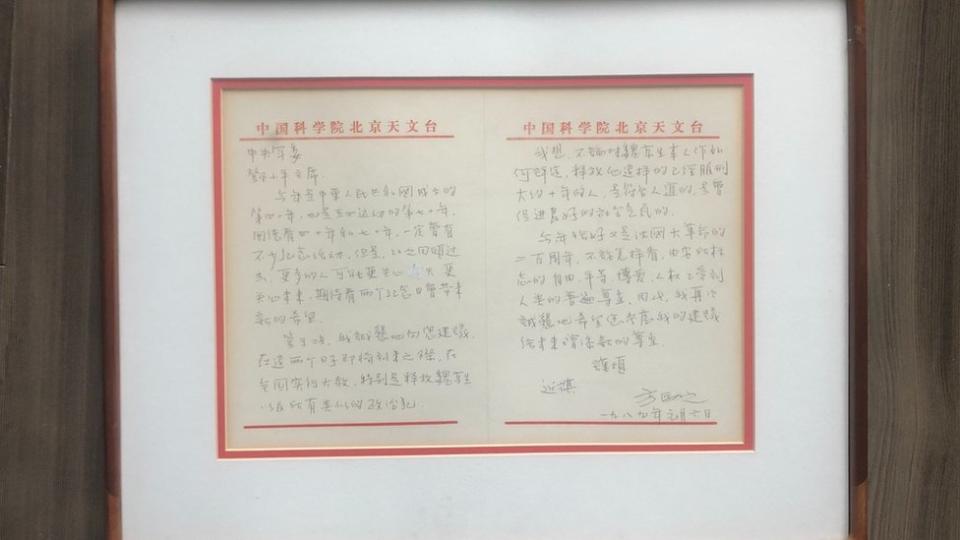 中国科学院北京天文台
中央军委
邓小平主席:
今年是中华人民共和国成立的
第四十年,也是五四运动的第七十年。
围绕着四十年和七十年,一定会有
不少纪念活动。但是,比之回顾过
去,更多的人可能更关心 更
关心未来,期待着两个纪念日会带来
新的希望。
鉴于此,我诚恳地向您建议,
在这两个日子即将到来之际,在
全国实行大赦,特别是释放魏京生
以及所有类似的政治犯。
中国科学院北京天文台
我想,不论对魏京生本人作如
何评定,释放他这样的已经服刑
大约十年的人,是符合人道的,是会
促进良好的社会气氛的。
今年恰好又是法国大革命的
二百周年,不论怎样看,由它所标
志的自由、平等、博爱、人权已受到
人类的普遍尊重。因此,我再次
诚恳地希望您考虑我的建议,
给未来增添新的尊重。
谨颂
近祺
方励之
一九八九年元月六日